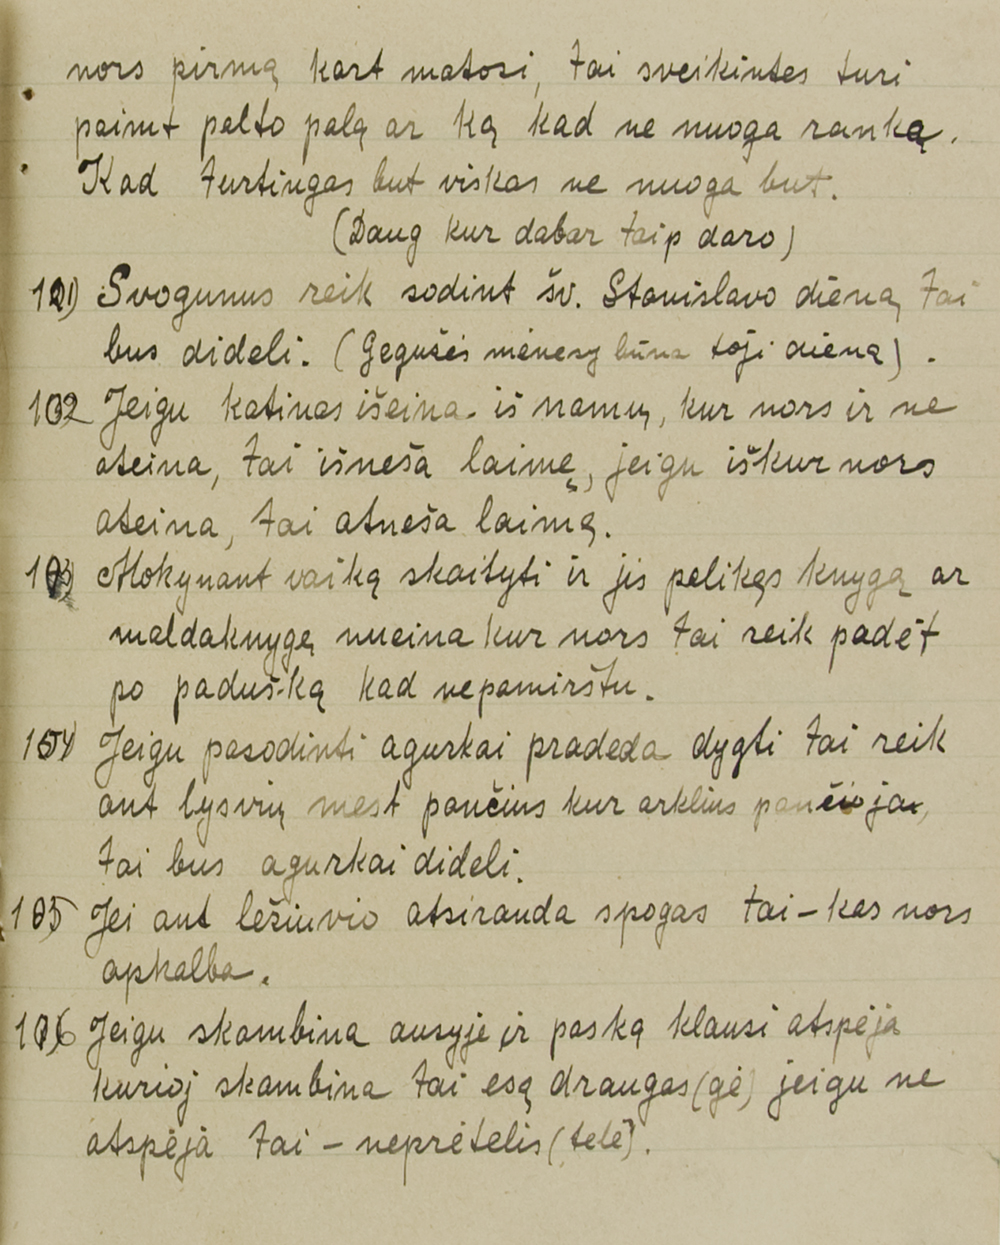 nors pirmą kart matosi, tai sveikintes turi
paimt palto palą ar ką kad ne nuoga ranką.
Kad turtingas but viskas ne nuoga but.
(Daug kur dabar taip daro)
101) Svogunus reik sodint šv. Stanislavo dieną tai
bus dideli. (Gegužės mėnesy būna toji diena).
102 Jeigu katinas išeina iš namų, kur nors ir ne
ateina, tai išneša laimę, jeigu iškur nors
ateina, tai atneša laimą.
103) Mokynant vaiką skaityti ir jis palikęs knygą ar
maldaknygę nueina kur nors tai reik padėt
po paduš-ką kad nepamirštu.
104) Jeigu pasodinti agurkai pradeda dygti tai reik
ant lysvių mest pančius kur arklius pančioja,
tai bus agurkai dideli.
105) Jei ant ležiuvio atsiranda spogas tai - kas nors
apkalba.
106 Jeigu skambina ausyje ir paską klausi atspėja
kurioj skambina tai esą draugas (gė) jeigu ne
atspėja tai - neprėtelis (telė).